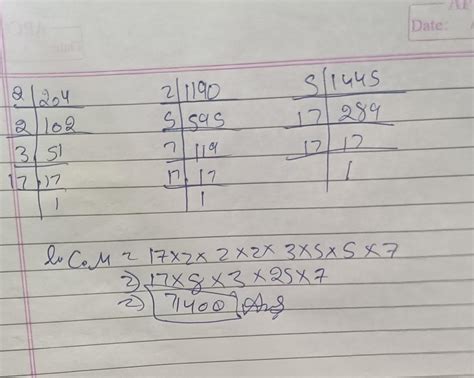 Date:
2 | 204
2 | 102
3 | 51
17 | 17
1
2 | 1190
5 | 595
7 | 119
17 | 17
1
5 | 1445
17 | 289
17 | 17
1
L.C.M = 17×2×2×2×3×5×5×7
=) 17×8×3×25×7
=) 71400 Ans